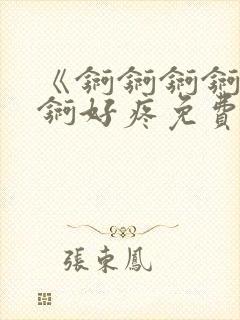 《錒錒錒錒
錒好疼免費
張東鳳